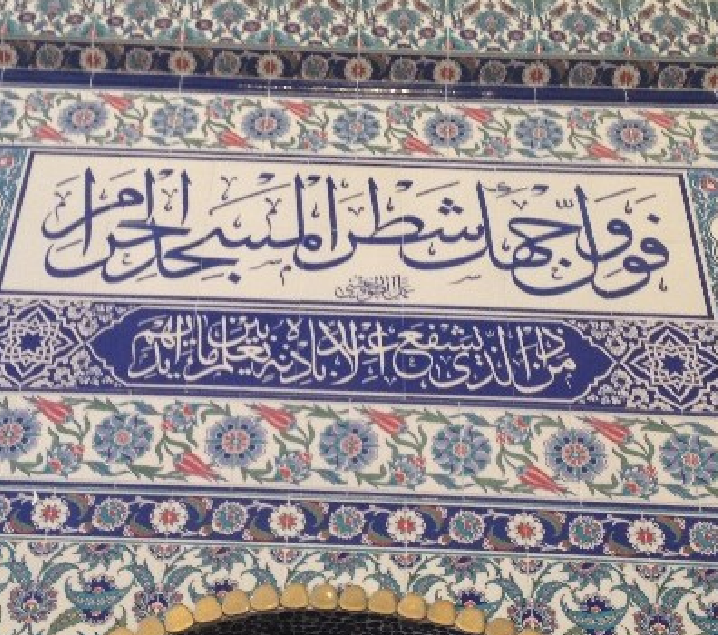 فول وجهك شطر المسجد الحرام
من ذا الذي يشفع عنده الا باذنه يعلم ما بين ايديهم